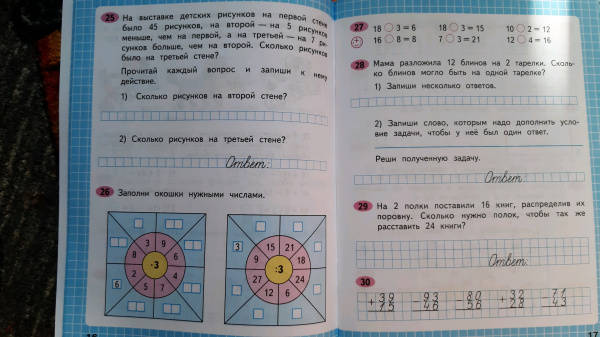 25 На выставке детских рисунков на первой стене
было 45 рисунков, на второй — на 5 рисунков
меньше, чем на первой, а на третьей — на 7 ри-
сунков больше, чем на второй. Сколько рисунков
было на третьей стене?
Прочитай каждый вопрос и запиши к нему
действие.
1) Сколько рисунков на второй стене?
2) Сколько рисунков на третьей стене?
Ответ:
26 Заполни окошки нужными числами.
3 9
8 6
2 4
5 7
·3
6
15 21
9 18
27 24
12 6
:3
3
16
27 18 3 = 6 18 3 = 15 10 2 = 12
16 8 = 8 7 3 = 21 12 4 = 16
28 Мама разложила 12 блинов на 2 тарелки. Сколь-
ко блинов могло быть на одной тарелке?
1) Запиши несколько ответов.
2) Запиши слово, которым надо дополнить усло-
вие задачи, чтобы у неё был один ответ.
Реши полученную задачу.
Ответ:
29 На 2 полки поставили 16 книг, распределив их
поровну. Сколько нужно полок, чтобы так же
расставить 24 книги?
Ответ:
30
+39 −93 −80 +32 −71
15 46 56 28 43
17